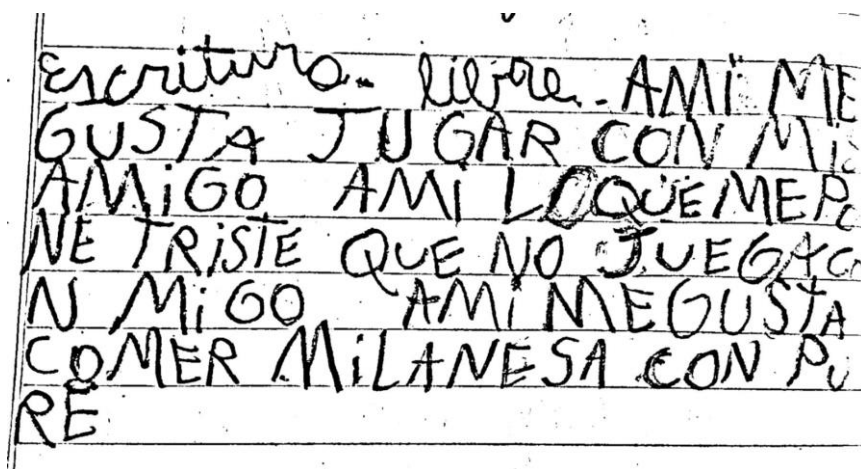 escritura - libre. AMi ME
GUSTA JUGAR CON Mi
AMiGO AMi LOQUEMEPO
NE TRiSTE QUE NO JUEGACO
N MiGO AMi MEGUSTA
COMER MiLANESA CON PU
RE